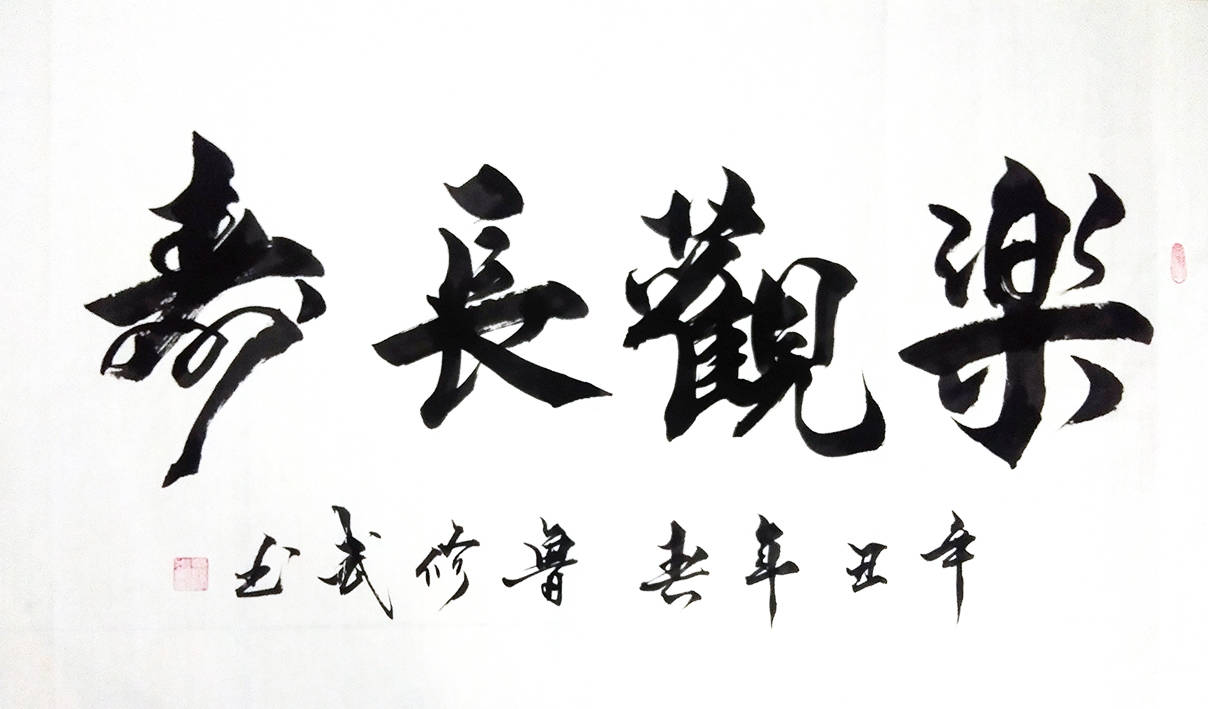 樂觀長壽
辛丑年春 魯修武书